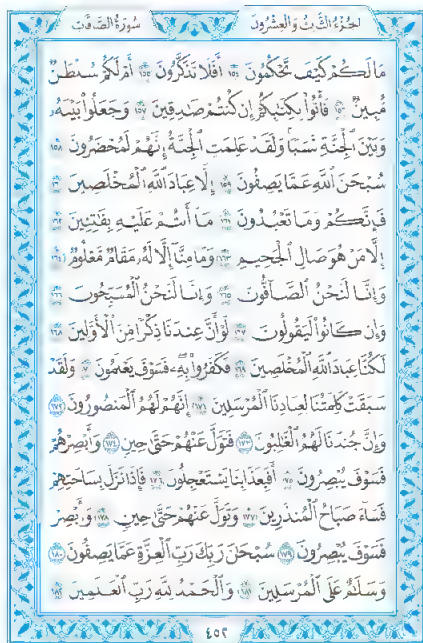 الجزء الثالث والعشرون سورة الصافات
مَا لَكُمْ كَيْفَ تَحْكُمُونَ ١٥٤ أَفَلَا تَذَكَّرُونَ ١٥٥ أَمْ لَكُمْ سُلْطَٰنٌ
مُّبِينٌ ١٥٦ فَأْتُوا۟ بِكِتَٰبِكُمْ إِن كُنتُمْ صَٰدِقِينَ ١٥٧ وَجَعَلُوا۟ بَيْنَهُۥ
وَبَيْنَ ٱلْجِنَّةِ نَسَبًا وَلَقَدْ عَلِمَتِ ٱلْجِنَّةُ إِنَّهُمْ لَمُحْضَرُونَ ١٥٨
سُبْحَٰنَ ٱللَّهِ عَمَّا يَصِفُونَ ١٥٩ إِلَّا عِبَادَ ٱللَّهِ ٱلْمُخْلَصِينَ ١٦٠
فَإِنَّكُمْ وَمَا تَعْبُدُونَ ١٦١ مَآ أَنتُمْ عَلَيْهِ بِفَٰتِنِينَ ١٦٢
إِلَّا مَنْ هُوَ صَالِ ٱلْجَحِيمِ ١٦٣ وَمَا مِنَّآ إِلَّا لَهُۥ مَقَامٌ مَّعْلُومٌ ١٦٤
وَإِنَّا لَنَحْنُ ٱلصَّآفُّونَ ١٦٥ وَإِنَّا لَنَحْنُ ٱلْمُسَبِّحُونَ ١٦٦
وَإِن كَانُوا۟ لَيَقُولُونَ ١٦٧ لَوْ أَنَّ عِندَنَا ذِكْرًا مِّنَ ٱلْأَوَّلِينَ ١٦٨
لَكُنَّا عِبَادَ ٱللَّهِ ٱلْمُخْلَصِينَ ١٦٩ فَكَفَرُوا۟ بِهِۦ فَسَوْفَ يَعْلَمُونَ ١٧٠ وَلَقَدْ
سَبَقَتْ كَلِمَتُنَا لِعِبَادِنَا ٱلْمُرْسَلِينَ ١٧١ إِنَّهُمْ لَهُمُ ٱلْمَنصُورُونَ ١٧٢
وَإِنَّ جُندَنَا لَهُمُ ٱلْغَٰلِبُونَ ١٧٣ فَتَوَلَّ عَنْهُمْ حَتَّىٰ حِينٍ ١٧٤ وَأَبْصِرْهُمْ
فَسَوْفَ يُبْصِرُونَ ١٧٥ أَفَبِعَذَابِنَا يَسْتَعْجِلُونَ ١٧٦ فَإِذَا نَزَلَ بِسَاحَتِهِمْ
فَسَآءَ صَبَاحُ ٱلْمُنذَرِينَ ١٧٧ وَتَوَلَّ عَنْهُمْ حَتَّىٰ حِينٍ ١٧٨ وَأَبْصِرْ
فَسَوْفَ يُبْصِرُونَ ١٧٩ سُبْحَٰنَ رَبِّكَ رَبِّ ٱلْعِزَّةِ عَمَّا يَصِفُونَ ١٨٠
وَسَلَٰمٌ عَلَى ٱلْمُرْسَلِينَ ١٨١ وَٱلْحَمْدُ لِلَّهِ رَبِّ ٱلْعَٰلَمِينَ ١٨٢
٤٥٢